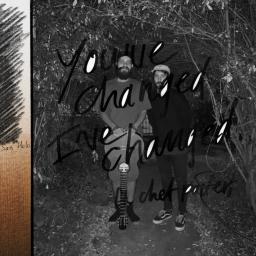 You've
changed
I've
changed.
chet porter